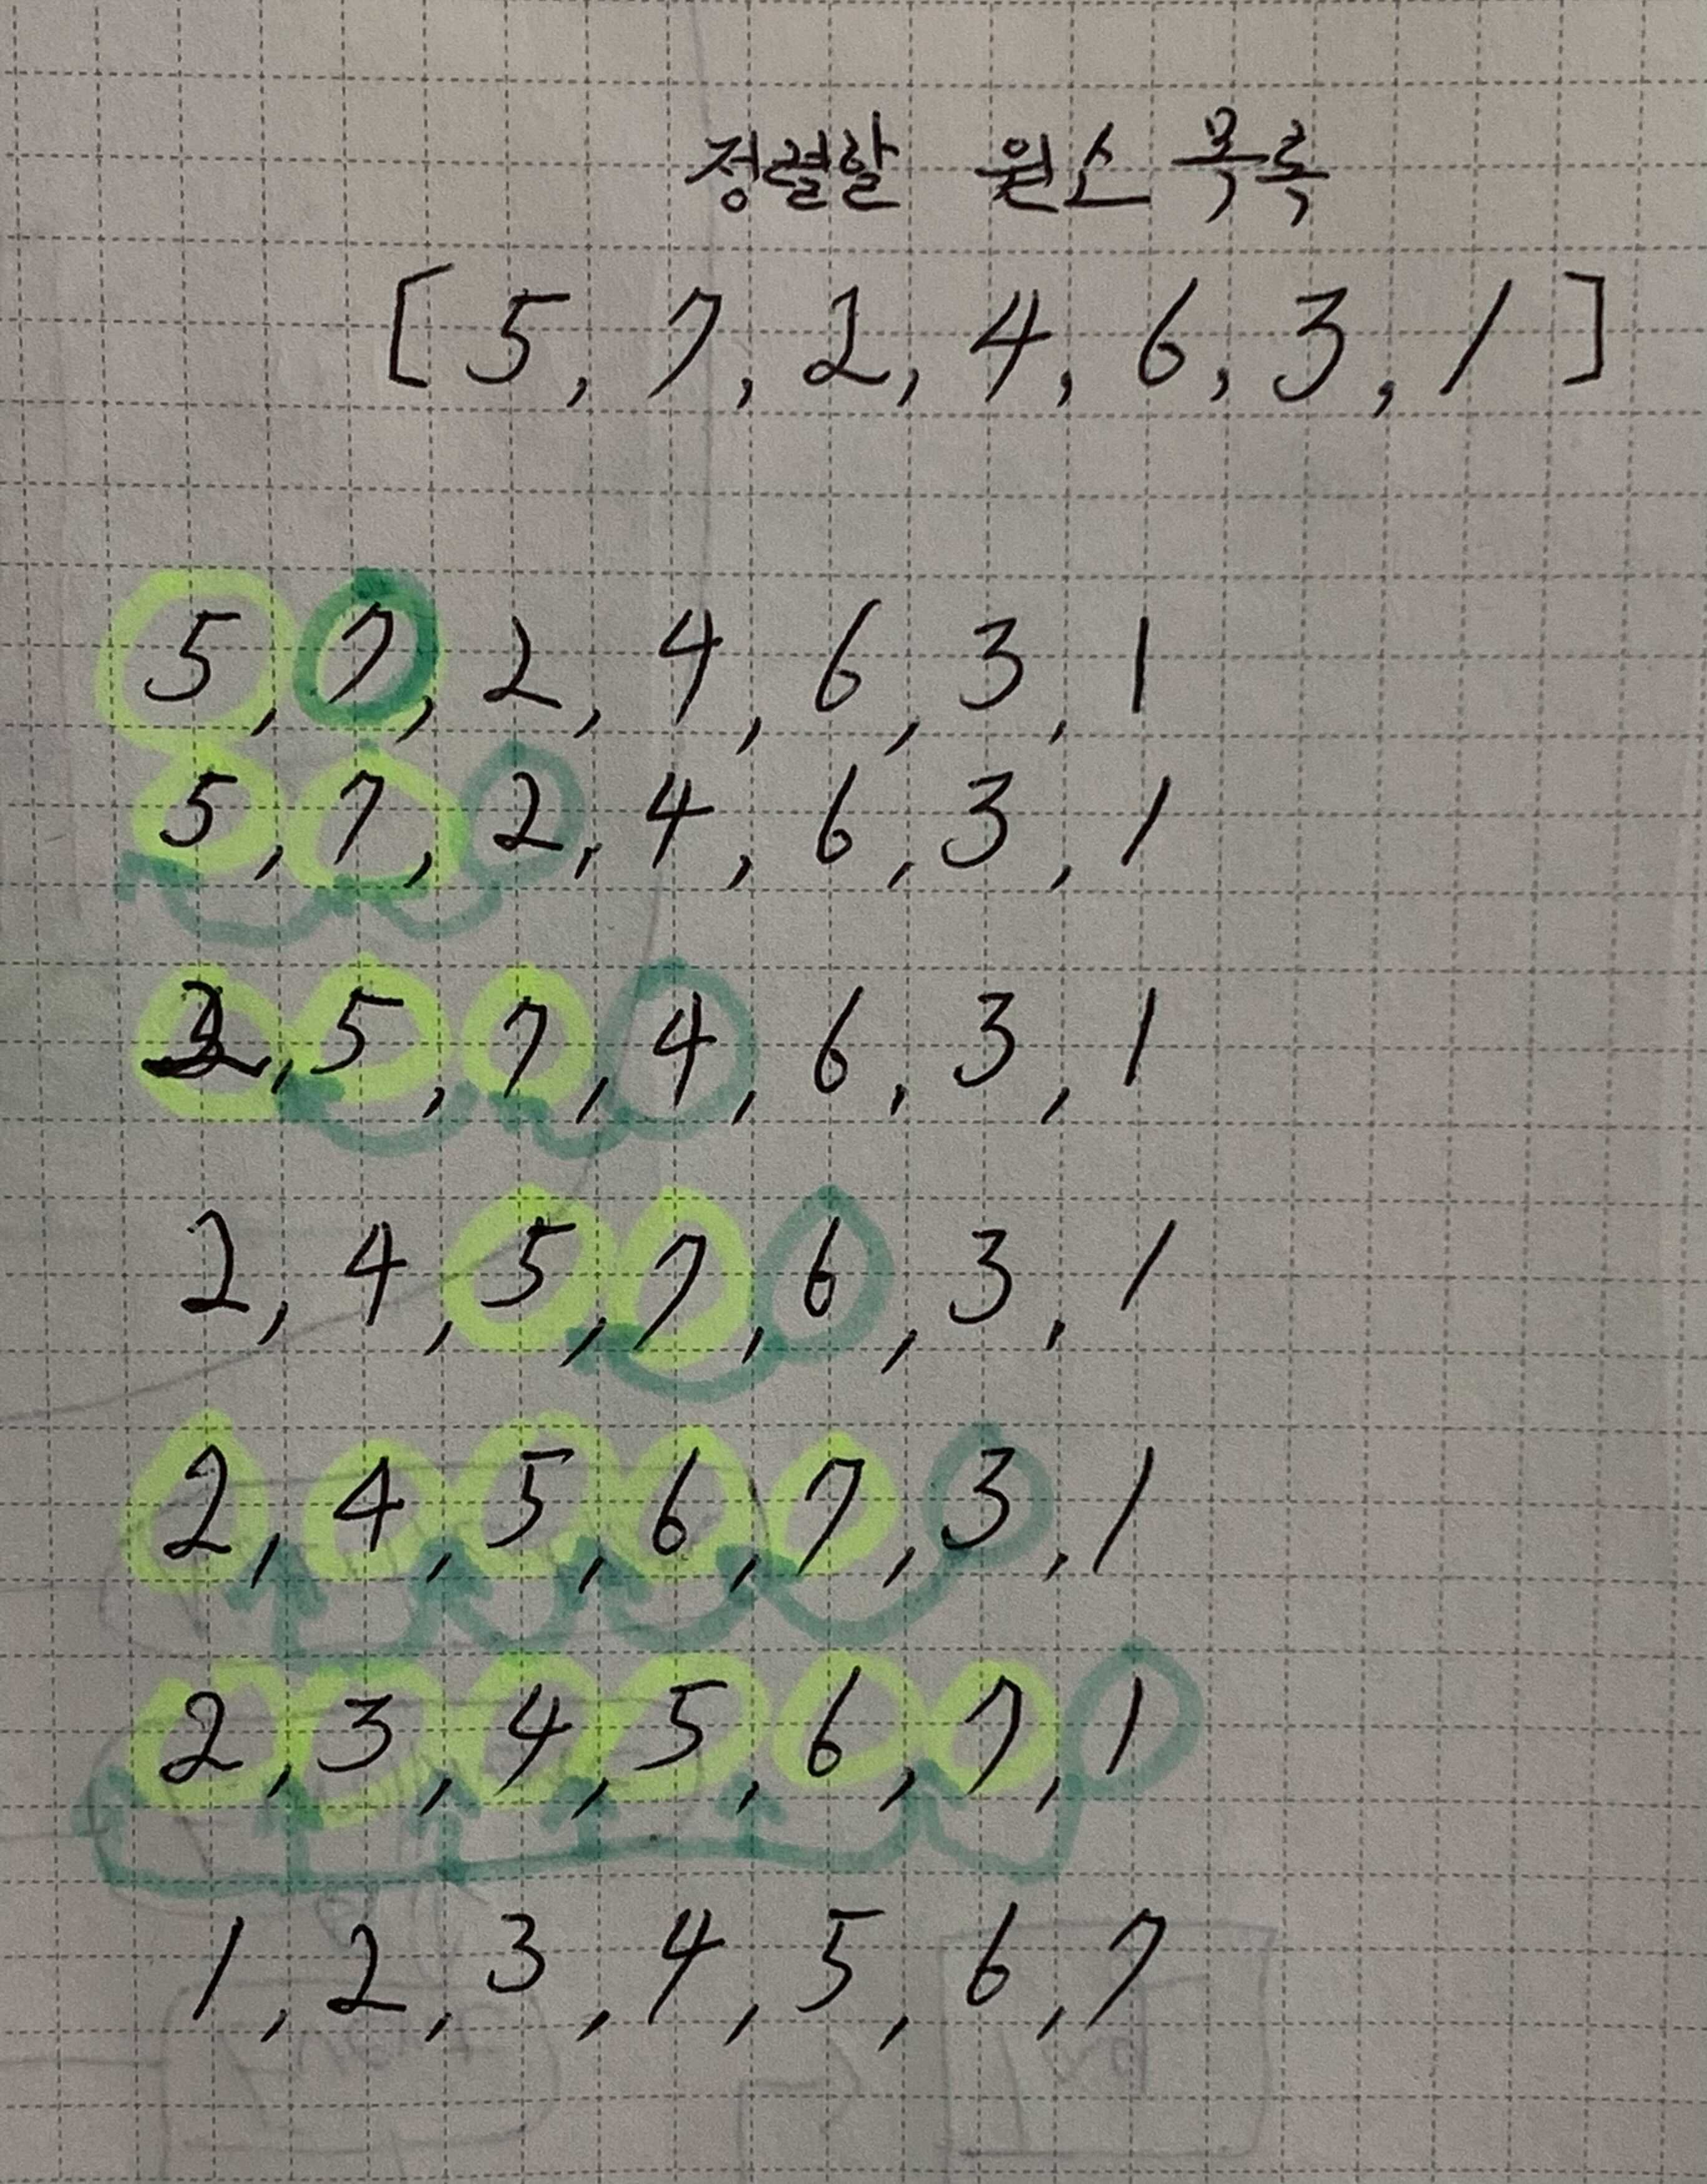 정렬할 원소 목록
[5, 7, 2, 4, 6, 3, 1]
5, 7, 2, 4, 6, 3, 1
5, 7, 2, 4, 6, 3, 1
2, 5, 7, 4, 6, 3, 1
2, 4, 5, 7, 6, 3, 1
2, 4, 5, 6, 7, 3, 1
2, 3, 4, 5, 6, 7, 1
1, 2, 3, 4, 5, 6, 7